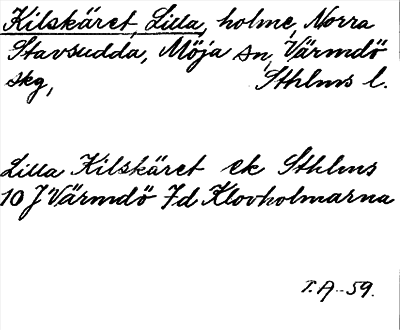 Kilskäret, Lilla, holme, Norra
Stavsudda, Möja sn, Värmdö
skg, Sthlms l.
Lilla Kilskäret ek Sthlms
10 J Värmdö 7d Klovholmarna
T.A-59.